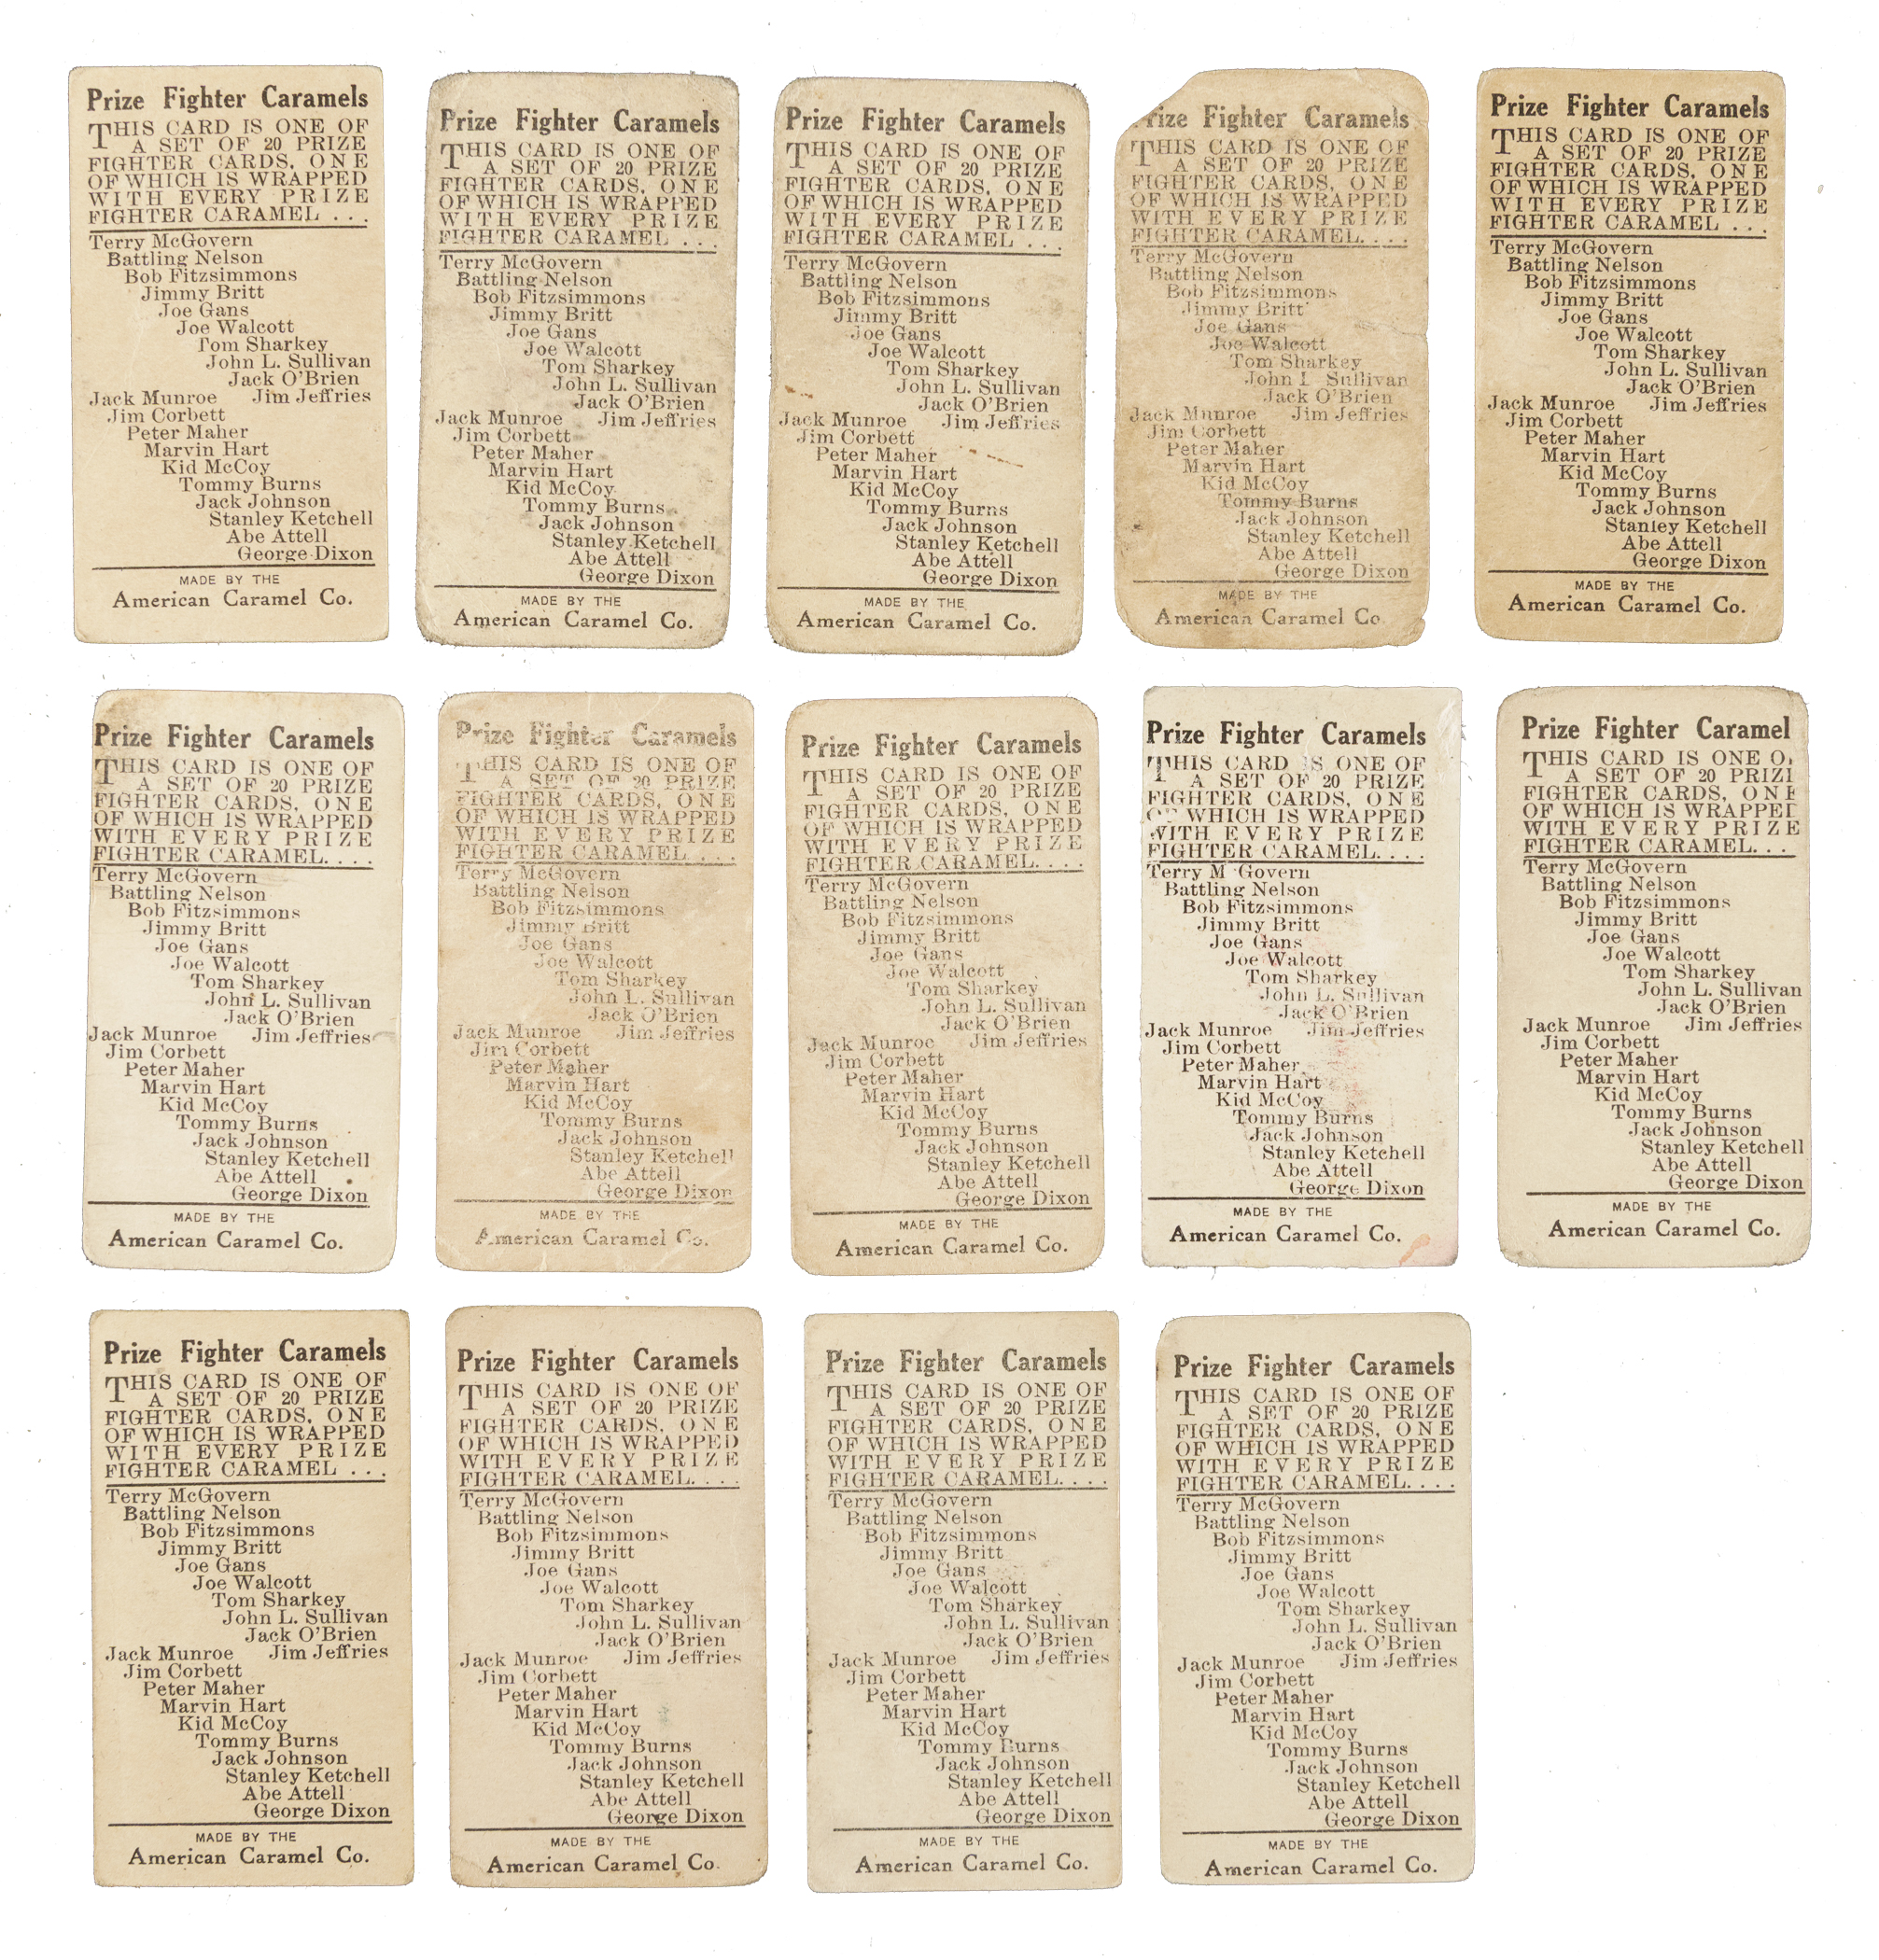 Prize Fighter Caramels
THIS CARD IS ONE OF
A SET OF 20 PRIZE
FIGHTER CARDS, ONE
OF WHICH IS WRAPPED
WITH EVERY PRIZE
FIGHTER CARAMEL . . .
Terry McGovern
Battling Nelson
Bob Fitzsimmons
Jimmy Britt
Joe Gans
Joe Walcott
Tom Sharkey
John L. Sullivan
Jack O'Brien
Jack Munroe Jim Jeffries
Jim Corbett
Peter Maher
Marvin Hart
Kid McCoy
Tommy Burns
Jack Johnson
Stanley Ketchell
Abe Attell
George Dixon
MADE BY THE
American Caramel Co.
Prize Fighter Caramels
THIS CARD IS ONE OF
A SET OF 20 PRIZE
FIGHTER CARDS, ONE
OF WHICH IS WRAPPED
WITH EVERY PRIZE
FIGHTER CARAMEL . . .
Terry McGovern
Battling Nelson
Bob Fitzsimmons
Jimmy Britt
Joe Gans
Joe Walcott
Tom Sharkey
John L. Sullivan
Jack O'Brien
Jack Munroe Jim Jeffries
Jim Corbett
Peter Maher
Marvin Hart
Kid McCoy
Tommy Burns
Jack Johnson
Stanley Ketchell
Abe Attell
George Dixon
MADE BY THE
American Caramel Co.
Prize Fighter Caramels
THIS CARD IS ONE OF
A SET OF 20 PRIZE
FIGHTER CARDS, ONE
OF WHICH IS WRAPPED
WITH EVERY PRIZE
FIGHTER CARAMEL . . .
Terry McGovern
Battling Nelson
Bob Fitzsimmons
Jimmy Britt
Joe Gans
Joe Walcott
Tom Sharkey
John L. Sullivan
Jack O'Brien
Jack Munroe Jim Jeffries
Jim Corbett
Peter Maher
Marvin Hart
Kid McCoy
Tommy Burns
Jack Johnson
Stanley Ketchell
Abe Attell
George Dixon
MADE BY THE
American Caramel Co.
rize Fighter Caramels
THIS CARD IS ONE OF
A SET OF 20 PRIZE
FIGHTER CARDS, ONE
OF WHICH IS WRAPPED
WITH EVERY PRIZE
FIGHTER CARAMEL. . . .
Terry McGovern
Battling Nelson
Bob Fitzsimmons
Jimmy Britt
Joe Gans
Joe Walcott
Tom Sharkey
John L Sullivan
Jack O'Brien
Jack Munroe Jim Jeffries
Jim Corbett
Peter Maher
Marvin Hart
Kid McCoy
Tommy Burns
Jack Johnson
Stanley Ketchell
Abe Attell
George Dixon
MADE BY THE
American Caramel Co
Prize Fighter Caramels
THIS CARD IS ONE OF
A SET OF 20 PRIZE
FIGHTER CARDS, ONE
OF WHICH IS WRAPPED
WITH EVERY PRIZE
FIGHTER CARAMEL . . .
Terry McGovern
Battling Nelson
Bob Fitzsimmons
Jimmy Britt
Joe Gans
Joe Walcott
Tom Sharkey
John L. Sullivan
Jack O'Brien
Jack Munroe Jim Jeffries
Jim Corbett
Peter Maher
Marvin Hart
Kid McCoy
Tommy Burns
Jack Johnson
Stanley Ketchell
Abe Attell
George Dixon
MADE BY THE
American Caramel Co.
Prize Fighter Caramels
THIS CARD IS ONE OF
A SET OF 20 PRIZE
FIGHTER CARDS, ONE
OF WHICH IS WRAPPED
WITH EVERY PRIZE
FIGHTER CARAMEL. . . .
Terry McGovern
Battling Nelson
Bob Fitzsimmons
Jimmy Britt
Joe Gans
Joe Walcott
Tom Sharkey
John L. Sullivan
Jack O'Brien
Jack Munroe Jim Jeffries
Jim Corbett
Peter Maher
Marvin Hart
Kid McCoy
Tommy Burns
Jack Johnson
Stanley Ketchell
Abe Attell
George Dixon
MADE BY THE
American Caramel Co.
Prize Fighter Caramels
THIS CARD IS ONE OF
A SET OF 20 PRIZE
FIGHTER CARDS, ONE
OF WHICH IS WRAPPED
WITH EVERY PRIZE
FIGHTER CARAMEL . . .
Terry McGovern
Battling Nelson
Bob Fitzsimmons
Jimmy Britt
Joe Gans
Joe Walcott
Tom Sharkey
John L. Sullivan
Jack O'Brien
Jack Munroe Jim Jeffries
Jim Corbett
Peter Maher
Marvin Hart
Kid McCoy
Tommy Burns
Jack Johnson
Stanley Ketchell
Abe Attell
George Dixon
MADE BY THE
American Caramel Co.
Prize Fighter Caramels
THIS CARD IS ONE OF
A SET OF 20 PRIZE
FIGHTER CARDS, ONE
OF WHICH IS WRAPPED
WITH EVERY PRIZE
FIGHTER CARAMEL. . . .
Terry McGovern
Battling Nelson
Bob Fitzsimmons
Jimmy Britt
Joe Gans
Joe Walcott
Tom Sharkey
John L. Sullivan
Jack O'Brien
Jack Munroe Jim Jeffries
Jim Corbett
Peter Maher
Marvin Hart
Kid McCoy
Tommy Burns
Jack Johnson
Stanley Ketchell
Abe Attell
George Dixon
MADE BY THE
American Caramel Co.
Prize Fighter Caramels
THIS CARD IS ONE OF
A SET OF 20 PRIZE
FIGHTER CARDS, ONE
WHICH IS WRAPPED
WITH EVERY PRIZE
FIGHTER CARAMEL. . . .
Terry M Govern
Battling Nelson
Bob Fitzsimmons
Jimmy Britt
Joe Gans
Joe Walcott
Tom Sharkey
John L. Sullivan
Jack O'Brien
Jack Munroe Jim Jeffries
Jim Corbett
Peter Maher
Marvin Hart
Kid McCoy
Tommy Burns
Jack Johnson
Stanley Ketchell
Abe Attell
George Dixon
MADE BY THE
American Caramel Co.
Prize Fighter Caramel
THIS CARD IS ONE O
A SET OF 20 PRIZ
FIGHTER CARDS, ONE
OF WHICH IS WRAPPE
WITH EVERY PRIZE
FIGHTER CARAMEL. . .
Terry McGovern
Battling Nelson
Bob Fitzsimmons
Jimmy Britt
Joe Gans
Joe Walcott
Tom Sharkey
John L. Sullivan
Jack O'Brien
Jack Munroe Jim Jeffries
Jim Corbett
Peter Maher
Marvin Hart
Kid McCoy
Tommy Burns
Jack Johnson
Stanley Ketchell
Abe Attell
George Dixon
MADE BY THE
American Caramel Co.
Prize Fighter Caramels
THIS CARD IS ONE OF
A SET OF 20 PRIZE
FIGHTER CARDS, ONE
OF WHICH IS WRAPPED
WITH EVERY PRIZE
FIGHTER CARAMEL . . .
Terry McGovern
Battling Nelson
Bob Fitzsimmons
Jimmy Britt
Joe Gans
Joe Walcott
Tom Sharkey
John L. Sullivan
Jack O'Brien
Jack Munroe Jim Jeffries
Jim Corbett
Peter Maher
Marvin Hart
Kid McCoy
Tommy Burns
Jack Johnson
Stanley Ketchell
Abe Attell
George Dixon
MADE BY THE
American Caramel Co.
Prize Fighter Caramels
THIS CARD IS ONE OF
A SET OF 20 PRIZE
FIGHTER CARDS, ONE
OF WHICH IS WRAPPED
WITH EVERY PRIZE
FIGHTER CARAMEL. . . .
Terry McGovern
Battling Nelson
Bob Fitzsimmons
Jimmy Britt
Joe Gans
Joe Walcott
Tom Sharkey
John L. Sullivan
Jack O'Brien
Jack Munroe Jim Jeffries
Jim Corbett
Peter Maher
Marvin Hart
Kid McCoy
Tommy Burns
Jack Johnson
Stanley Ketchell
Abe Attell
George Dixon
MADE BY THE
American Caramel Co.
Prize Fighter Caramels
THIS CARD IS ONE OF
A SET OF 20 PRIZE
FIGHTER CARDS, ONE
OF WHICH IS WRAPPED
WITH EVERY PRIZE
FIGHTER CARAMEL. . . .
Terry McGovern
Battling Nelson
Bob Fitzsimmons
Jimmy Britt
Joe Gans
Joe Walcott
Tom Sharkey
John L. Sullivan
Jack O'Brien
Jack Munroe Jim Jeffries
Jim Corbett
Peter Maher
Marvin Hart
Kid McCoy
Tommy Burns
Jack Johnson
Stanley Ketchell
Abe Attell
George Dixon
MADE BY THE
American Caramel Co.
Prize Fighter Caramels
THIS CARD IS ONE OF
A SET OF 20 PRIZE
FIGHTER CARDS, ONE
OF WHICH IS WRAPPED
WITH EVERY PRIZE
FIGHTER CARAMEL. . . .
Terry McGovern
Battling Nelson
Bob Fitzsimmons
Jimmy Britt
Joe Gans
Joe Walcott
Tom Sharkey
John L. Sullivan
Jack O'Brien
Jack Munroe Jim Jeffries
Jim Corbett
Peter Maher
Marvin Hart
Kid McCoy
Tommy Burns
Jack Johnson
Stanley Ketchell
Abe Attell
George Dixon
MADE BY THE
American Caramel Co.